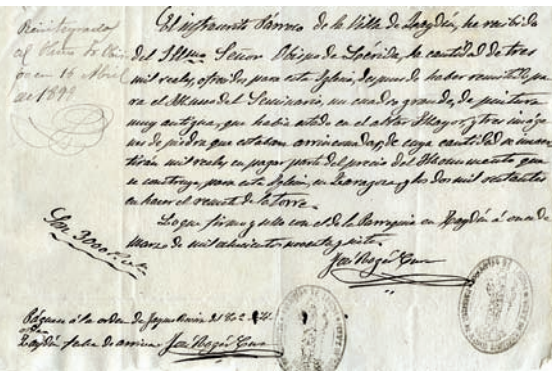 Reintegrado
al
en 15 Abril
de 1899
El infrascrito Párroco de la Villa de Zaydín, ha recibido
del Illmo Señor Obispo de Lérida, la cantidad de tres
mil reales, ofrecidos para esta Iglesia, despues de haber remitido pa
ra el Museo del Seminario, un cuadro grande, de pintura
muy antigua, que habia estado en el altar Mayor, y tres imáge
nes de piedra que estaban arrinconadas; de cuya cantidad se inver
tirán mil reales en pagar parte del precio del Monumento que
se construye para esta Iglesia, en Zaragoza, y los dos mil restantes
en hacer el remate de la torre.
Lo que firmo y sello con el de la Parroquia en Zaydín á once de
Marzo de mil ochocientos noventa y siete.
José Cura
Son 3000 Reales
Páguese á la orden de
Zaydín fecha de arriva José Cura